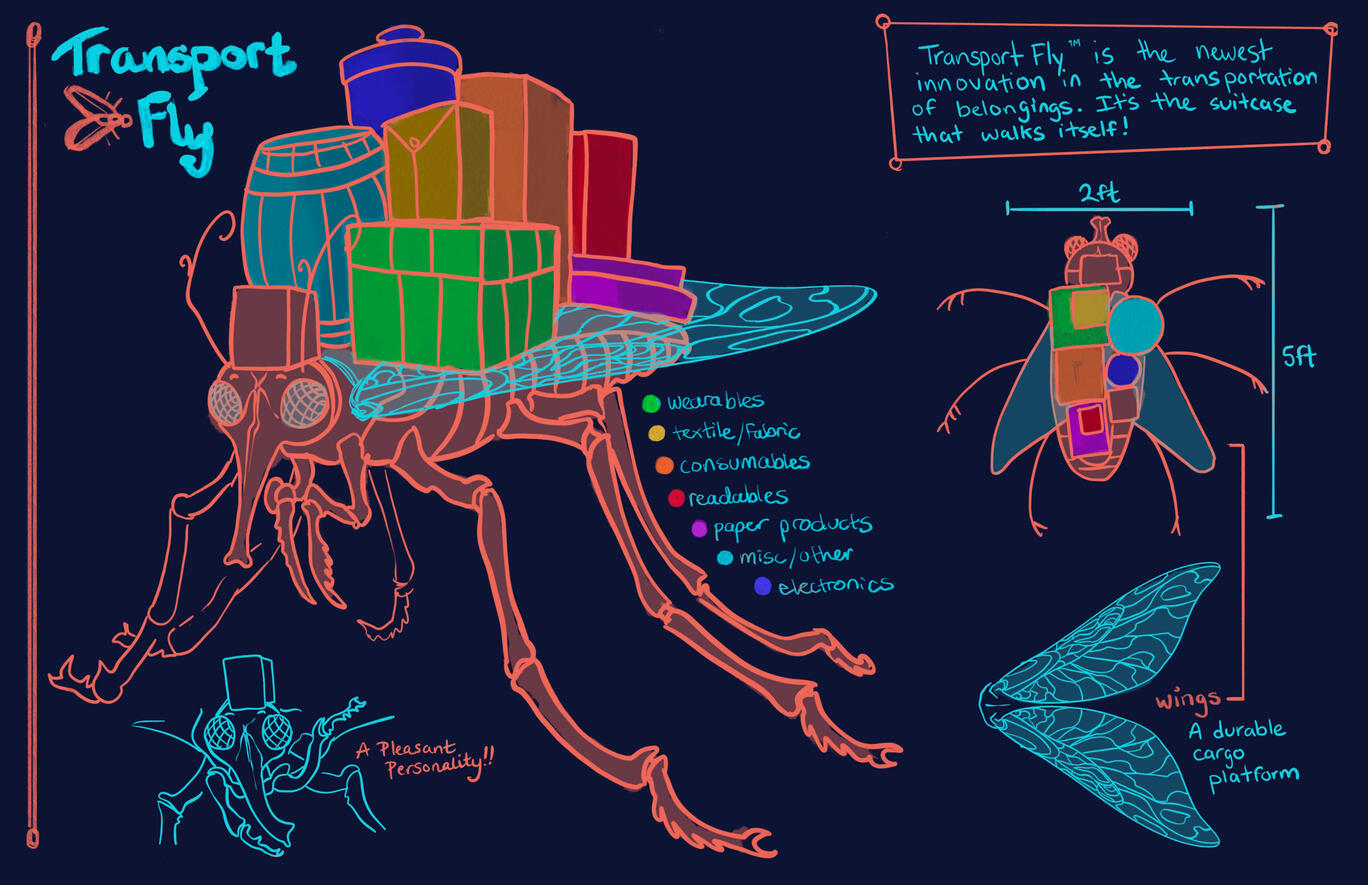 Transport
Fly
Transport Fly™ is the newest
innovation in the transportation
of belongings. It's the suitcase
that walks itself!
2ft
5ft
wearables
textile/fabric
consumables
readables
paper products
misc/other
electronics
A Pleasant
Personality!!
wings
A durable
cargo
platform